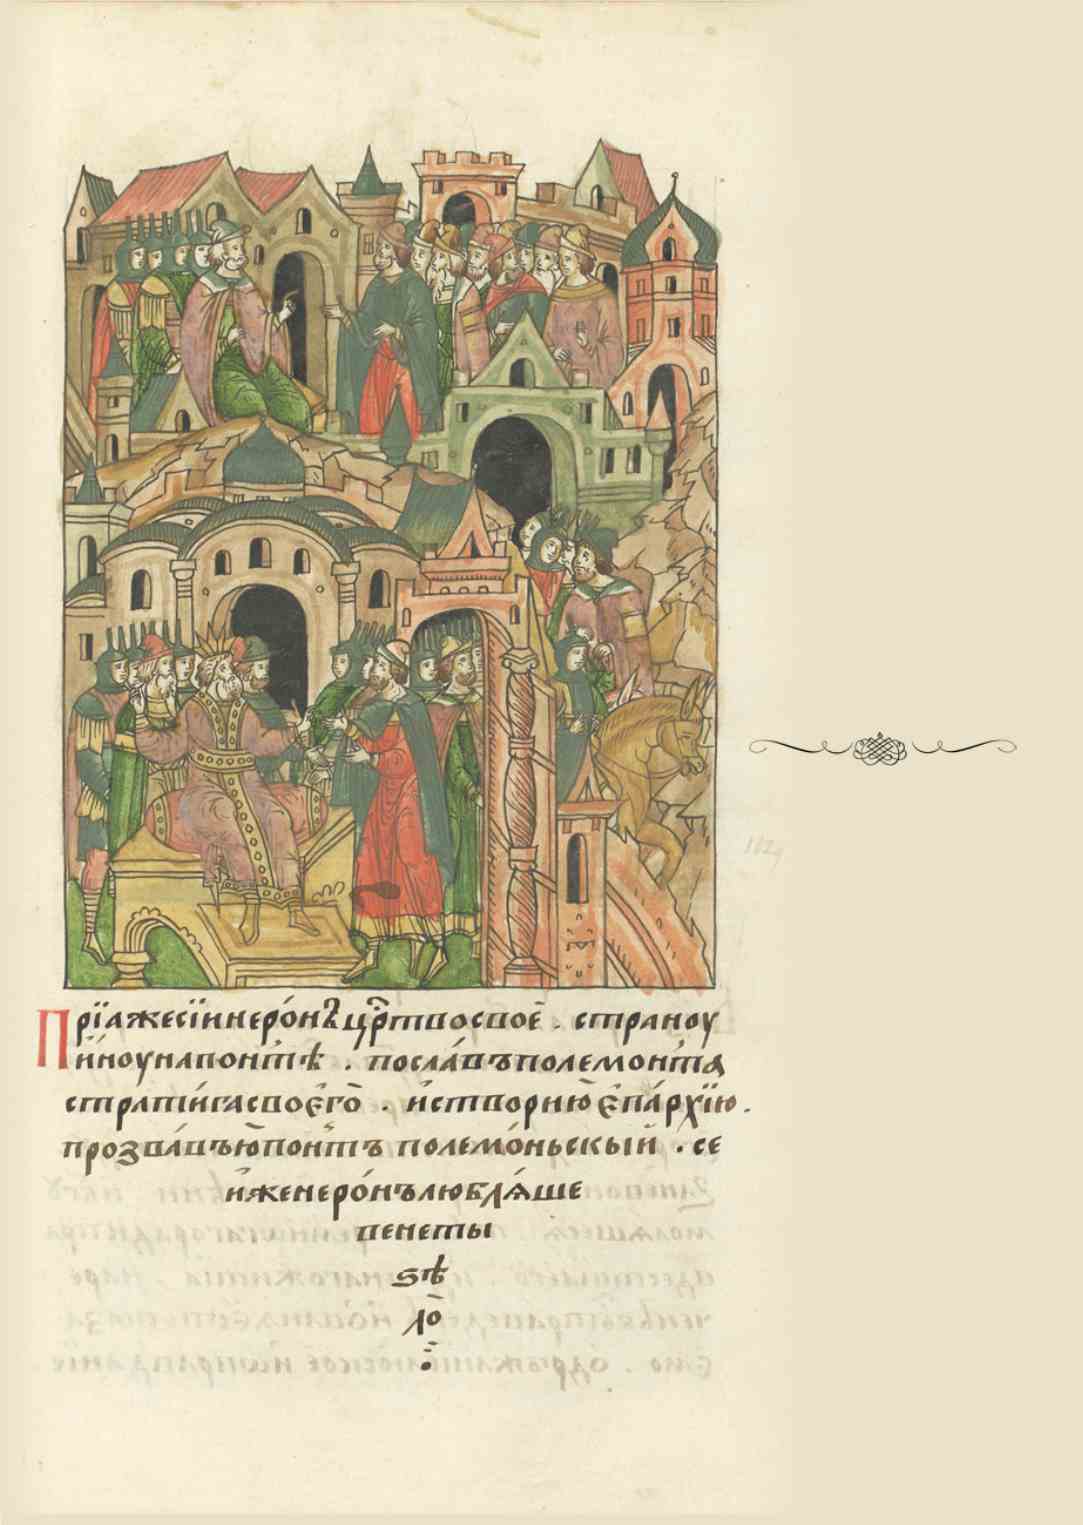 Прїажесїиинеро́нъцр҃твосвое̑ . страноу
и́ноунапонт́ѣ . посла́въполемонт́а
страти́гасвоє҆го̑ . и҆створию̑є҆па́рхїю .
прозва́въю̑понт́ъ полемо́ньскыи҆ . се
и҆женеро́нълюблѧ́ше
венеты
ѕѣ
ло̑